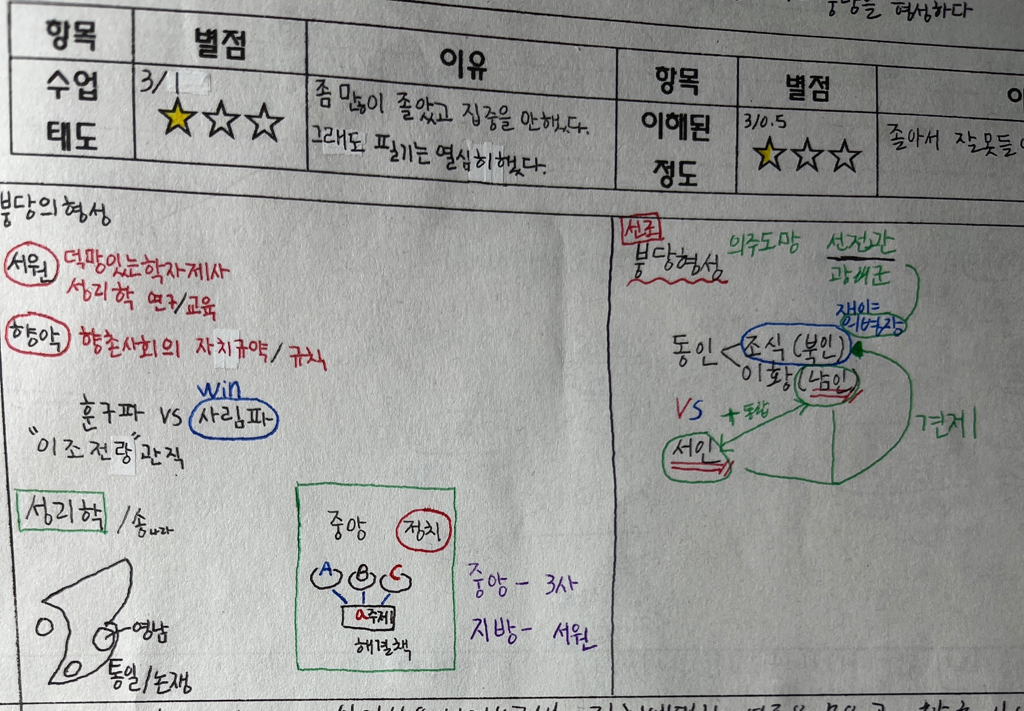 붕당을 형성하다
항목 별점 이유 항목 별점
수업 태도
3/1
좀 많이 졸았고 집중을 안했다.
그래도 필기는 열심히했다.
이해된 정도
3/0.5
졸아서 잘못들
붕당의형성
서원 덕망있는학자제사
성리학 연구/교육
향약 향촌사회의 자치규약/규칙
win
훈구파 vs 사림파
"이조전랑"관직
성리학 /송나라
영남
통일/논쟁
중앙 정치
A B C
a주제
해결책
중앙 - 3사
지방 - 서원
선조
붕당형성
의주도망 선전관
광해군
의병장
동인 조식(북인)
이황(남인)
VS +통합
서인
견제